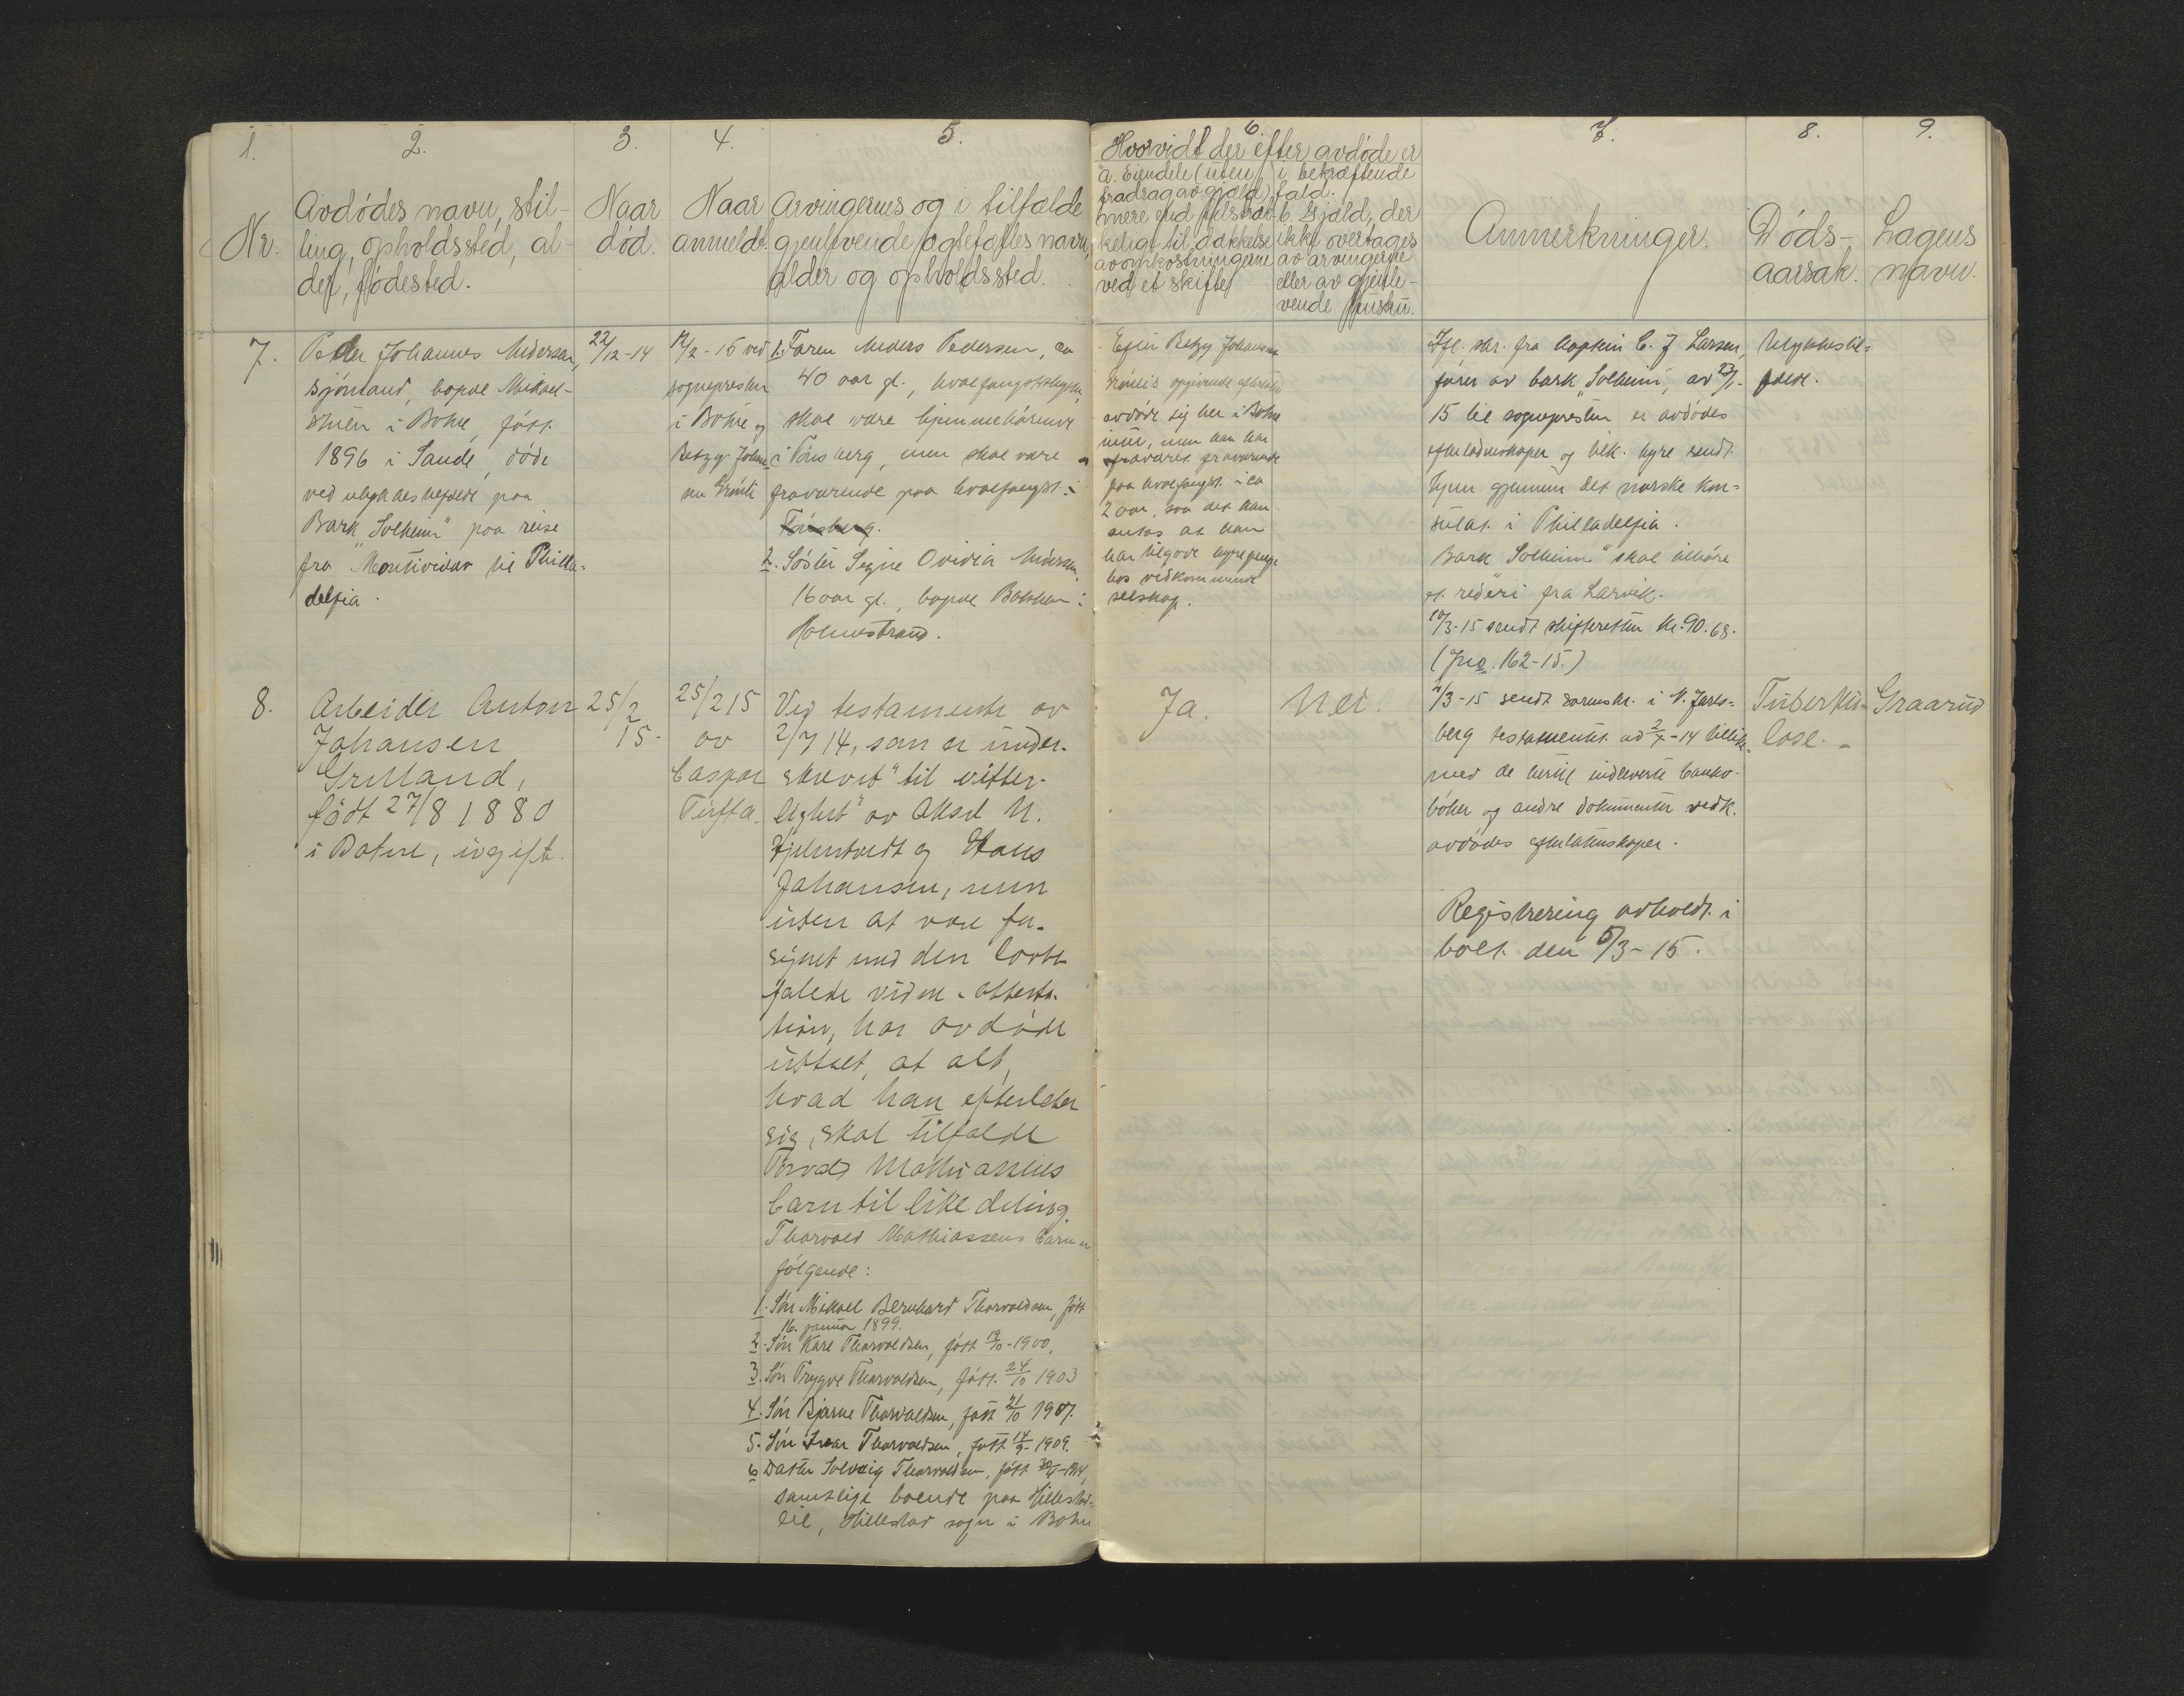 1.
2.
3.
4.
5.
6.
7.
8.
9.
Nr.
Avdødes navn, stil-
ling, opholdssted, al-
der, fødested.
Naar
død.
Naar
anmeldt.
Arvingernes og i tilfælde
gjenlevende ægtefælles navn,
alder og opholdssted.
Hvorvidt der efter avdøde er
a. Eiendele (uten
fradrag av gjæld)
mere end tilstræk-
kelig til dækkelse
av omkostningerne
ved et skifte
i bekræftende
fald.
b. Gjæld, der
ikke overtages
av arvingerne
eller av gjenle-
vende hustru.
Anmerkninger.
Døds-
aarsak.
Lægens
navn.
7.
Peder Johannes Andersen,
sjømand, bopæl Mikael-
stuen i Botne, født
1896 i Sande, døde
ved ulykkestilfælde paa
Bark "Solheim" paa reise
fra "Montividar til Philla-
delfia.
22/12-14
12/2-15 ved
sognepresten
i Botne og
Betzy Johan-
1. Faren Anders Pedersen, ca
40 aar gl., hvalfangst
skal være hjemmehørende
i Tønsberg, men skal være
fraværende paa hvalfangst.
Tønsberg.
2. Søster Signe Ovidia Andersen,
16 aar gl., bopæl i
Holmestrand.
Efter Betzy Johansen
opgivende efterlot
avdøde sig her i Botne
intet, men han har
fraværet fraværende
paa hvalfangst i ca
2 aar, saa det kan
antas at han
har tilgode hyrepenge
hos vedkommende
selskap.
Ifl. skr. fra kaptein C. J. Larsen,
fører av bark "Solheim", av 23/1-
15 til sognepresten er avdødes
efterladenskaper og tilk. hyre sendt
hjem gjennem det norske kon-
sulat i Philladelfia.
Bark "Solheim" skal tilhøre
et rederi fra Larvik.
10/3-15 sendt skifteretten Kr. 90.68.
(Jno. 162-15.)
Ulykkestil-
fælde.
8.
Arbeider Anton
Johansen
Grilland,
født 27/8 1880
i Botne, ugift.
25/2
15-
25/2 15
av
Caspar
Tufta.
Ved testamente av
2/7 14, som er under-
skrevet "til vitter-
lighet" av Aksel M.
Hjelmtvedt og Hans
Johansen, men
uten at være for-
synet med den lovbe-
falede vidne-attesta-
tion, har avdøde
uttalt, at alt,
hvad han efterlater
sig, skal tilfalde
Torvald Mathiassens
barn til like deling.
Thorvald Mathiassens barn er
følgende:
1. Søn Mikael Bernhard Thorvaldsen, født
16. januar 1899.
2. Søn Karl Thorvaldsen, født 19/10-1900.
3. Søn Trygve Thorvaldsen, født 24/10 1903
4. Søn Bjarne Thorvaldsen, født 21/10 1907.
5. Søn Ivar Thorvaldsen, født 14/9-1909.
6 Datter Solveig Thorvaldsen, født 30/1-1914,
samtlige boende paa Hillestad-
eie, Hillestad sogn i Botne
Ja.
Nei.
2/3-15 sendt sorenskr. i N. Jarls-
berg testamentet ad 2/7-14 tillike
med de hertil indleverte bank-
bøker og andre dokumenter vedk.
avdødes efterlatenskaper.
Registrering avholdt i
boet den 5/3-15.
Tuberku-
lose.
Graarud